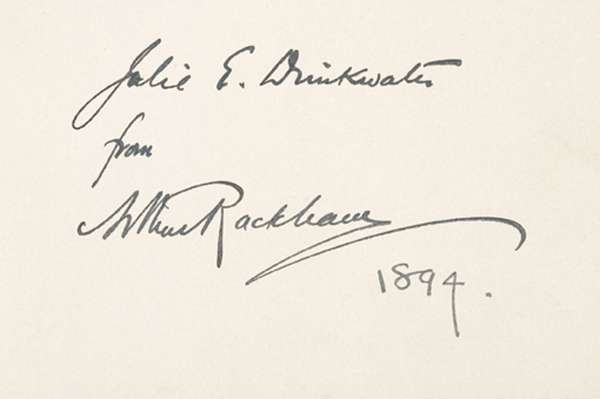 Julie E. Drinkwater
from
Arthur Rackham
1894.